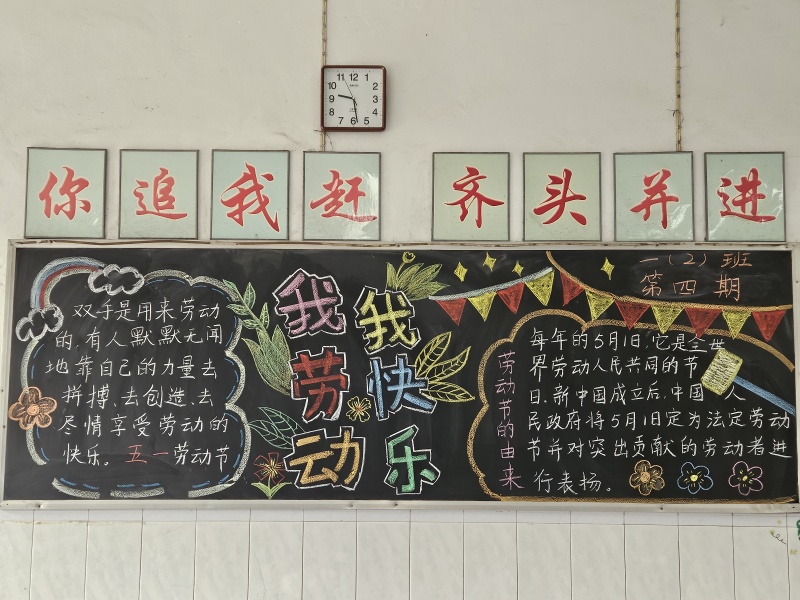 11 12 1
10 2
9 3
8 4
7 6 5
你追我赶 齐头并进
一(2)班
第四期
双手是用来劳动
的,有人默默无闻
地靠自己的力量去
拼搏、去创造、去
尽情享受劳动的
快乐。五一劳动节
我劳动
我快乐
劳动节的由来
每年的5月1日,它是全世
界劳动人民共同的节
日,新中国成立后,中国 人
民政府将5月1日定为法定劳动
节并对突出贡献的劳动者进
行表扬。